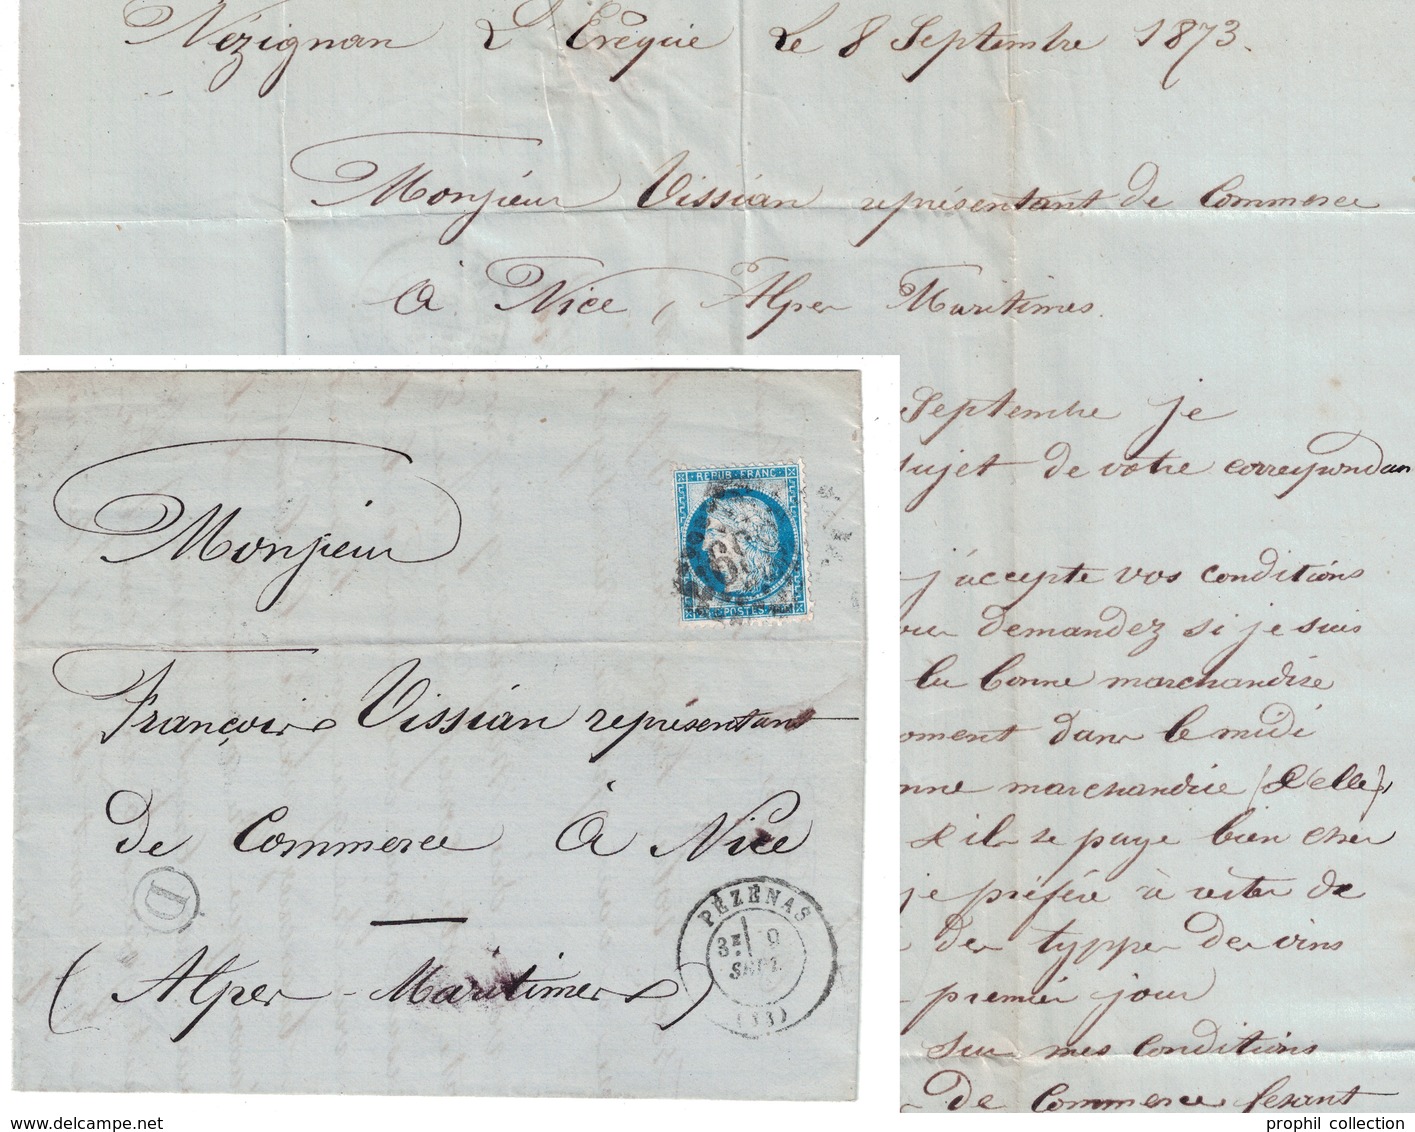 Nézignan L'Evêque Le 8 Septembre 1873.
Monsieur Vissian représentant de Commerce
à Nice, Alpes Maritimes.
Septembre je
sujet de votre correspondan
j'accepte vos conditions
demandez si je suis
la bonne marchandise
oment dans le midi
nne marchandise (Celle)
il se paye bien cher
je préfère à rester de
des typpes des vins
premier jour
sur mes conditions
De Commerce fesant
REPUB FRANC
POSTES
Monsieur
François Vissian représentant
de Commerce à Nice
D
PÉZÉNAS
3E 9
SEPT.
(33)
(Alpes-Maritimes)
delcampe.net
prophil collection